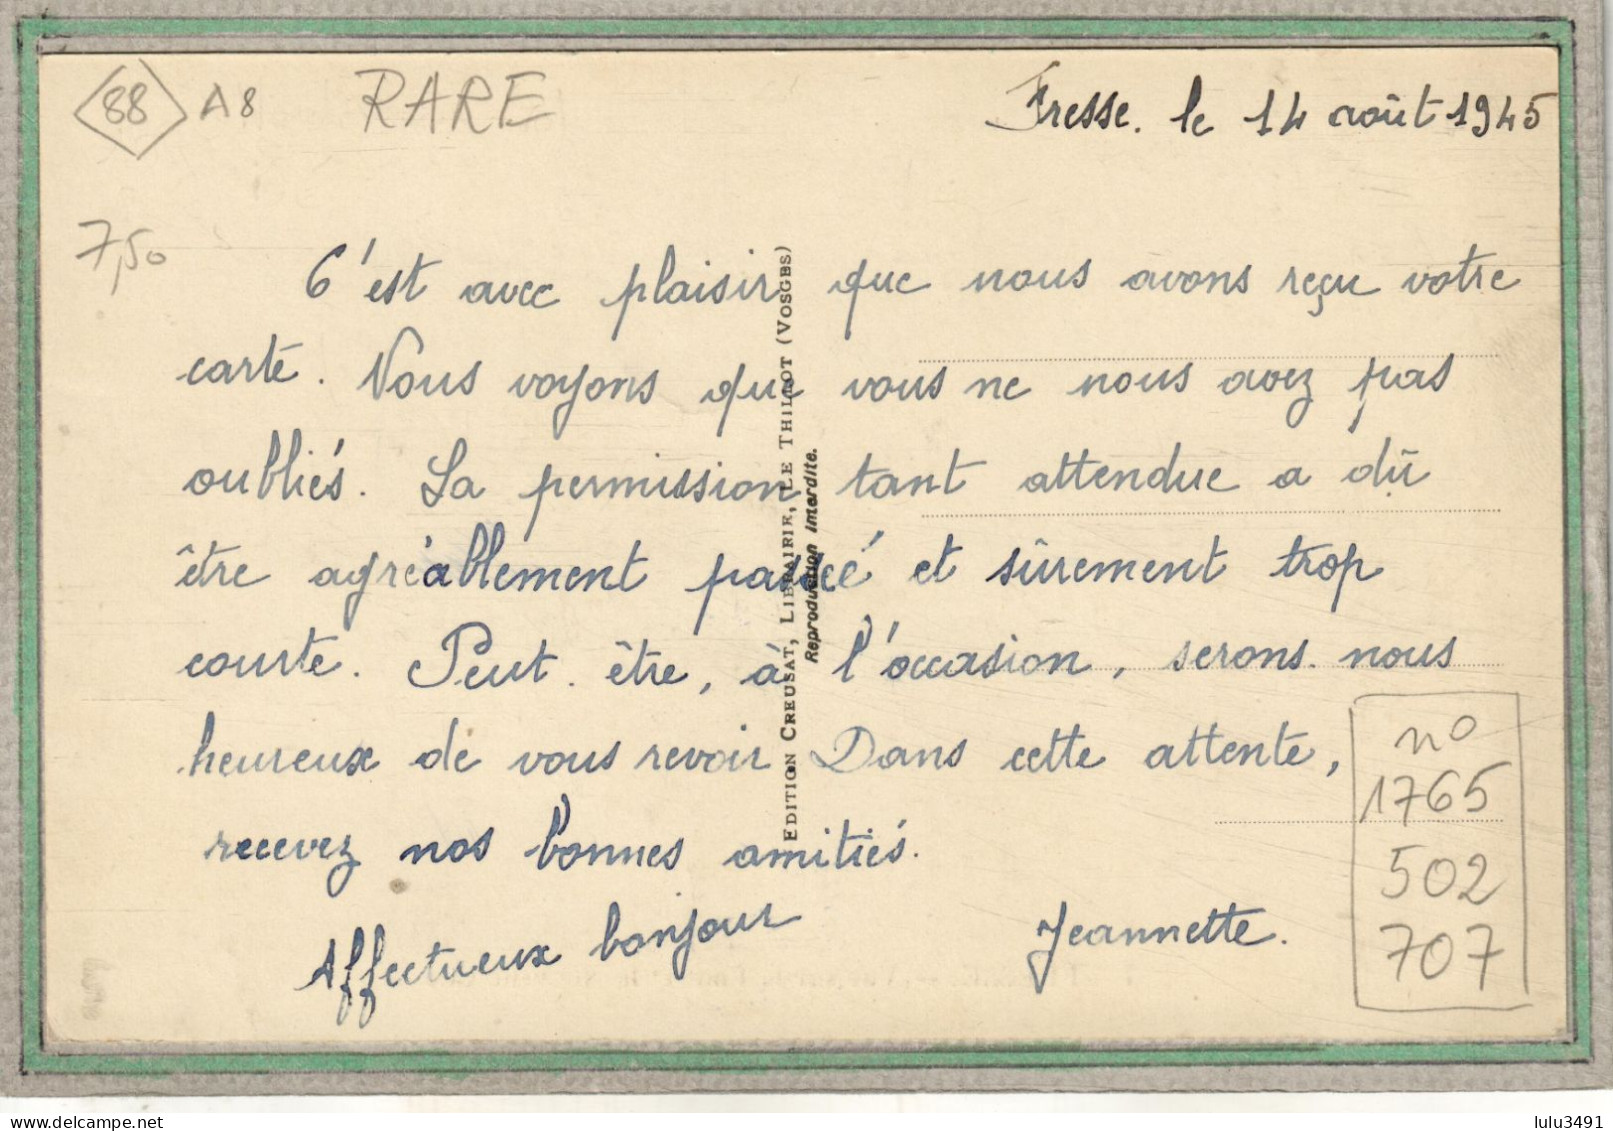 88 A8 RARE
Fresse. le 14 août 1945
7,50
C'est avec plaisir que nous avons reçu votre
carte. Nous voyons que vous ne nous avez pas
oubliés. La permission tant attendue a dû
être agréablement passée et sûrement trop
courte. Peut. être, à l'occasion, serons. nous
heureux de vous revoir Dans cette attente,
recevez nos bonnes amitiés.
Affectueux bonjour
Jeannette.
EDITION CREUSAT, LIBRAIRIE, LE THILLOT (VOSGES)
Reproduction interdite.
no
1765
502
707
lulu3491